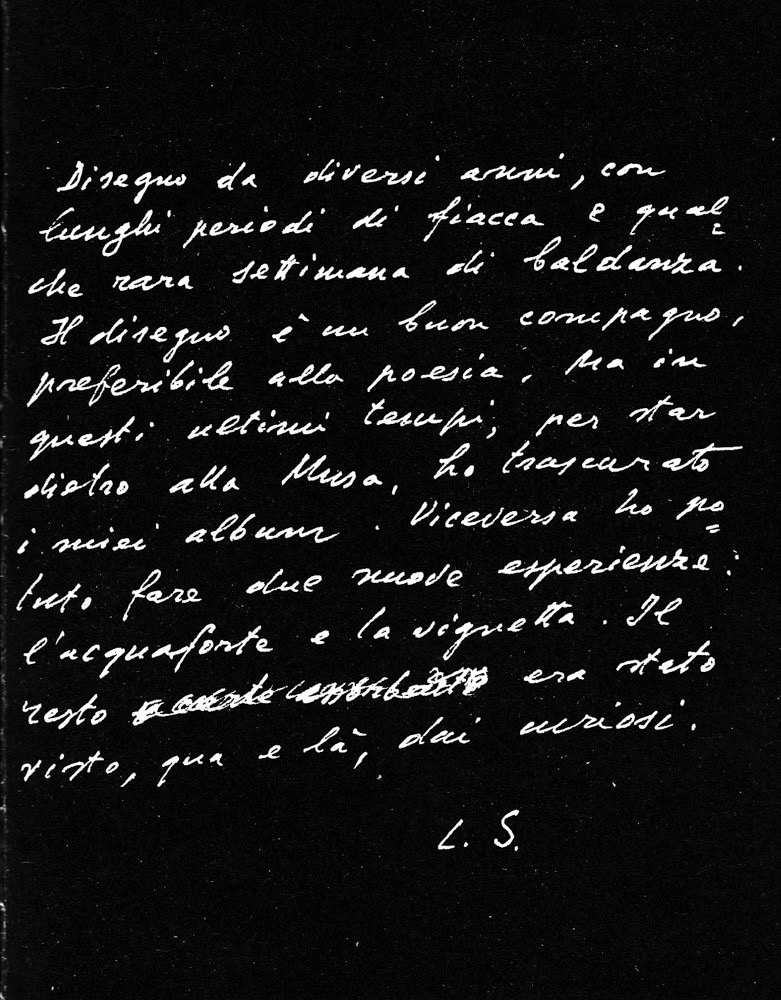 Disegno da diversi anni, con
lunghi periodi di fiacca e qual=
che rara settimana di baldanza.
Il disegno è un buon compagno,
preferibile alla poesia. Ma in
questi ultimi tempi, per star
dietro alla Musa, ho trascurato
i miei album. Viceversa ho po=
tuto fare due nuove esperienze:
l'acquaforte e la vignetta. Il
resto era stato
visto, qua e là, dai curiosi.
L. S.